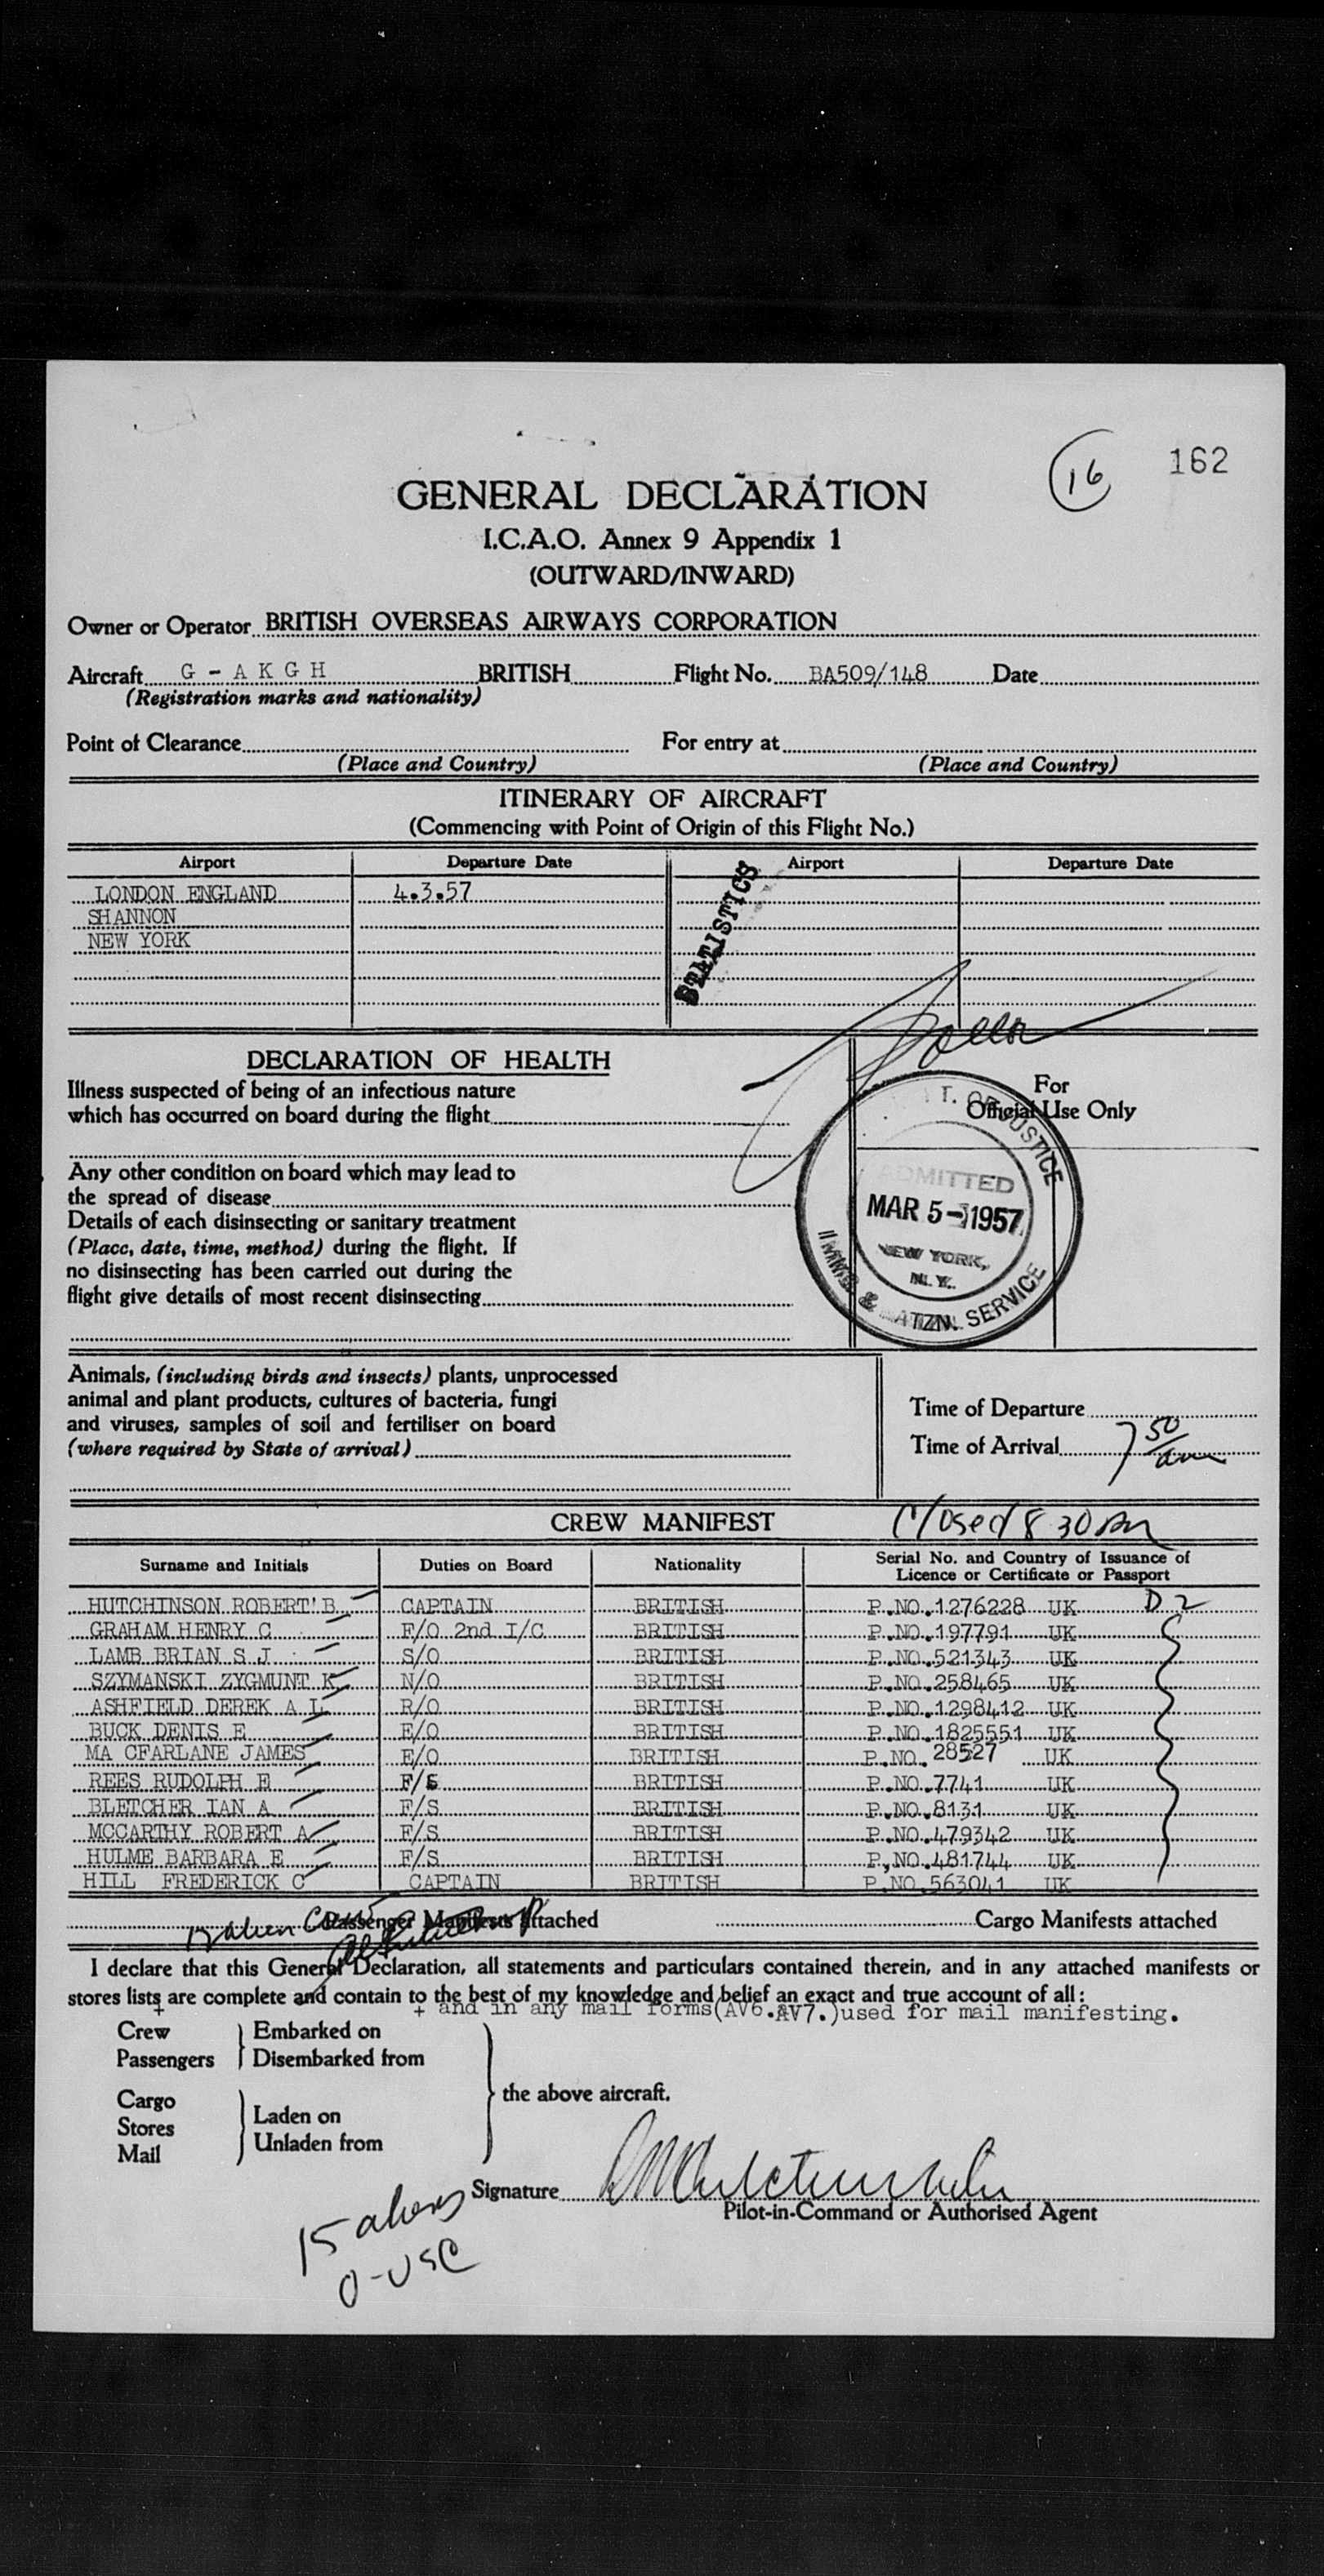 16 162
GENERAL DECLARATION
I.C.A.O. Annex 9 Appendix 1
(OUTWARD/INWARD)
Owner or Operator BRITISH OVERSEAS AIRWAYS CORPORATION
Aircraft G - A K G H BRITISH Flight No. BA509/148 Date
(Registration marks and nationality)
Point of Clearance For entry at
(Place and Country) (Place and Country)
ITINERARY OF AIRCRAFT
(Commencing with Point of Origin of this Flight No.)
Airport Departure Date Airport Departure Date
LONDON ENGLAND 4.3.57
SHANNON
NEW YORK
STATISTICS
DECLARATION OF HEALTH
Illness suspected of being of an infectious nature
which has occurred on board during the flight
Any other condition on board which may lead to
the spread of disease
Details of each disinsecting or sanitary treatment
(Place, date, time, method) during the flight. If
no disinsecting has been carried out during the
flight give details of most recent disinsecting
For
Official Use Only
T. OF JUSTICE
ADMITTED
MAR 5 - 1957
NEW YORK,
N.Y.
IMMIG & NATZN. SERVICE
Animals, (including birds and insects) plants, unprocessed
animal and plant products, cultures of bacteria, fungi
and viruses, samples of soil and fertiliser on board
(where required by State of arrival)
Time of Departure
Time of Arrival 7 50 am
CREW MANIFEST Closed 8 30 am
Surname and Initials Duties on Board Nationality Serial No. and Country of Issuance of
Licence or Certificate or Passport
HUTCHINSON ROBERT B CAPTAIN BRITISH P.NO.1276228 UK D2
GRAHAM HENRY C F/O 2nd I/C BRITISH P.NO.197791 UK
LAMB BRIAN S J S/O BRITISH P.NO.521343 UK
SZYMANSKI ZYGMUNT K N/O BRITISH P.NO.258465 UK
ASHFIELD DEREK A L R/O BRITISH P.NO.1298412 UK
BUCK DENIS E E/O BRITISH P.NO.1825551 UK
MA CFARLANE JAMES E/O BRITISH P.NO. 28527 UK
REES RUDOLPH E F/S BRITISH P.NO.7741 UK
BLETCHER IAN A F/S BRITISH P.NO.8131 UK
MCCARTHY ROBERT A F/S BRITISH P.NO.479342 UK
HULME BARBARA E F/S BRITISH P,NO.481744 UK
HILL FREDERICK C CAPTAIN BRITISH P.NO.563041 UK
Passenger Manifests attached Cargo Manifests attached
I declare that this General Declaration, all statements and particulars contained therein, and in any attached manifests or
stores lists are complete and contain to the best of my knowledge and belief an exact and true account of all:
+ + and in any mail forms(AV6.AV7.)used for mail manifesting.
Crew Embarked on
Passengers Disembarked from
the above aircraft.
Cargo
Stores Laden on
Mail Unladen from
Signature
Pilot-in-Command or Authorised Agent
15 aliens
0-USC